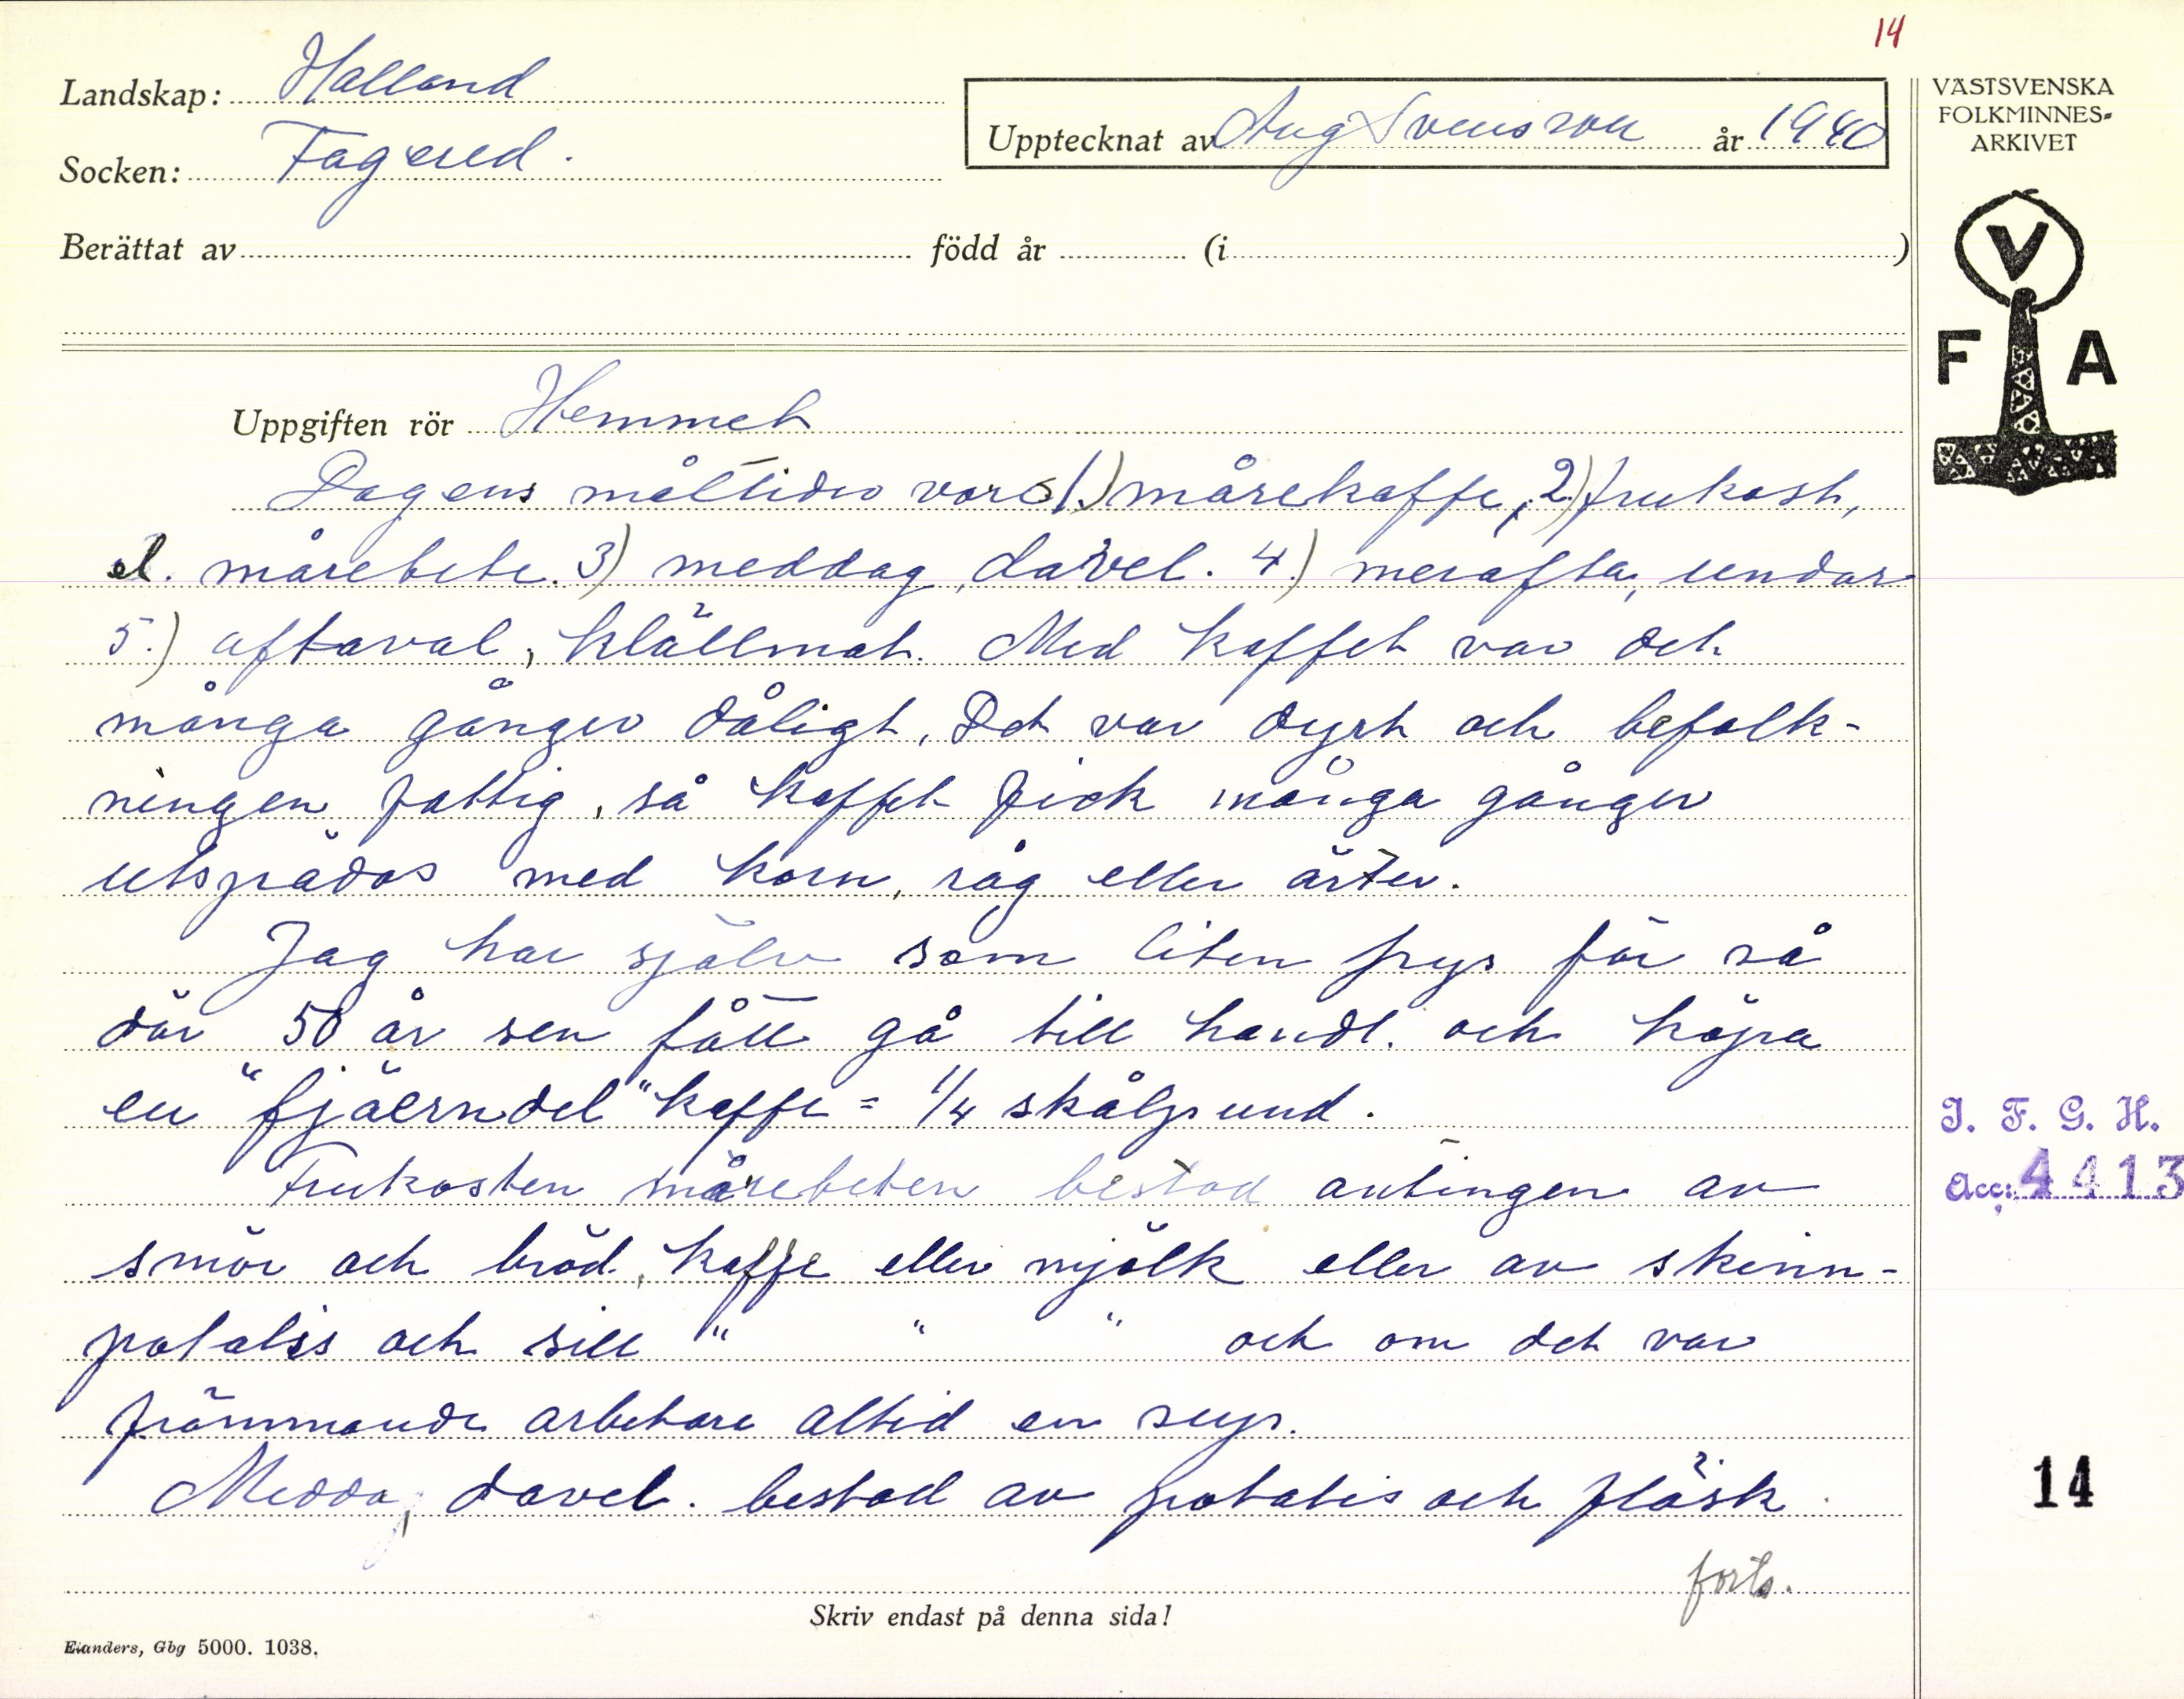 14
Landskap: Halland
Socken: Fagered.
Upptecknat av Aug Svensson år 1940
Berättat av född år (i )
VÄSTSVENSKA
FOLKMINNES-
ARKIVET
V
F A
Uppgiften rör Hemmet
Dagens måltider voro 1.) mårekaffe, 2.) frukost,
el. mårebete. 3) meddag, davel. 4.) merafta, undar
5.) aftaval, klällmat. Med kaffet var det
många gånger dåligt, Det var dyrt och befolk-
ningen fattig, så kaffet fick många gånger
utspädas med korn, råg eller ärter.
Jag har själv som liten pys för så
där 50 år sen fått gå till handl. och köpa
en "fjäerndel" kaffe = 1/4 skålpund.
Frukosten mårebeten bestod antingen av
smör och bröd, kaffe eller mjölk eller av skinn-
potatis och sill " " " och om det var
främmande arbetare altid en sup.
Meddag, davel. bestod av potatis och fläsk.
forts.
Skriv endast på denna sida!
Elanders, Gbg 5000. 1038.
I. F. G. H.
Acc: 4413
14